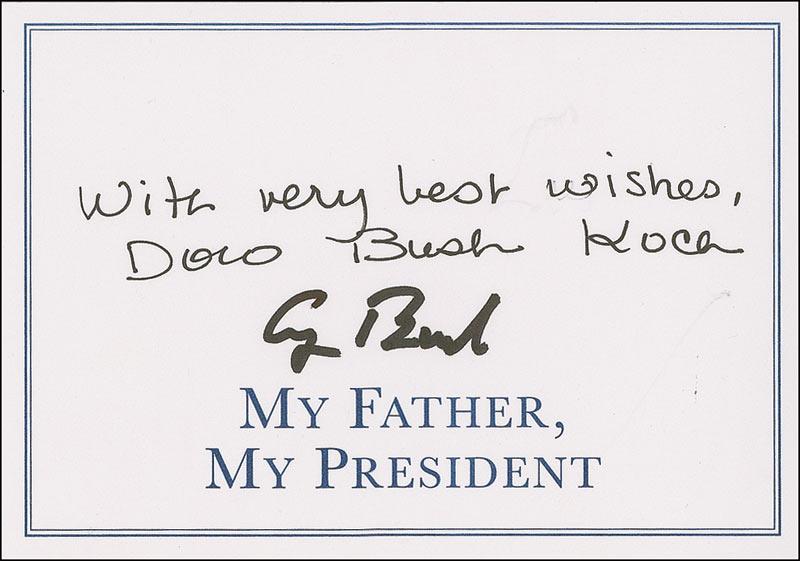 With very best wishes,
Doro Bush Koch
G Bush
MY FATHER,
MY PRESIDENT